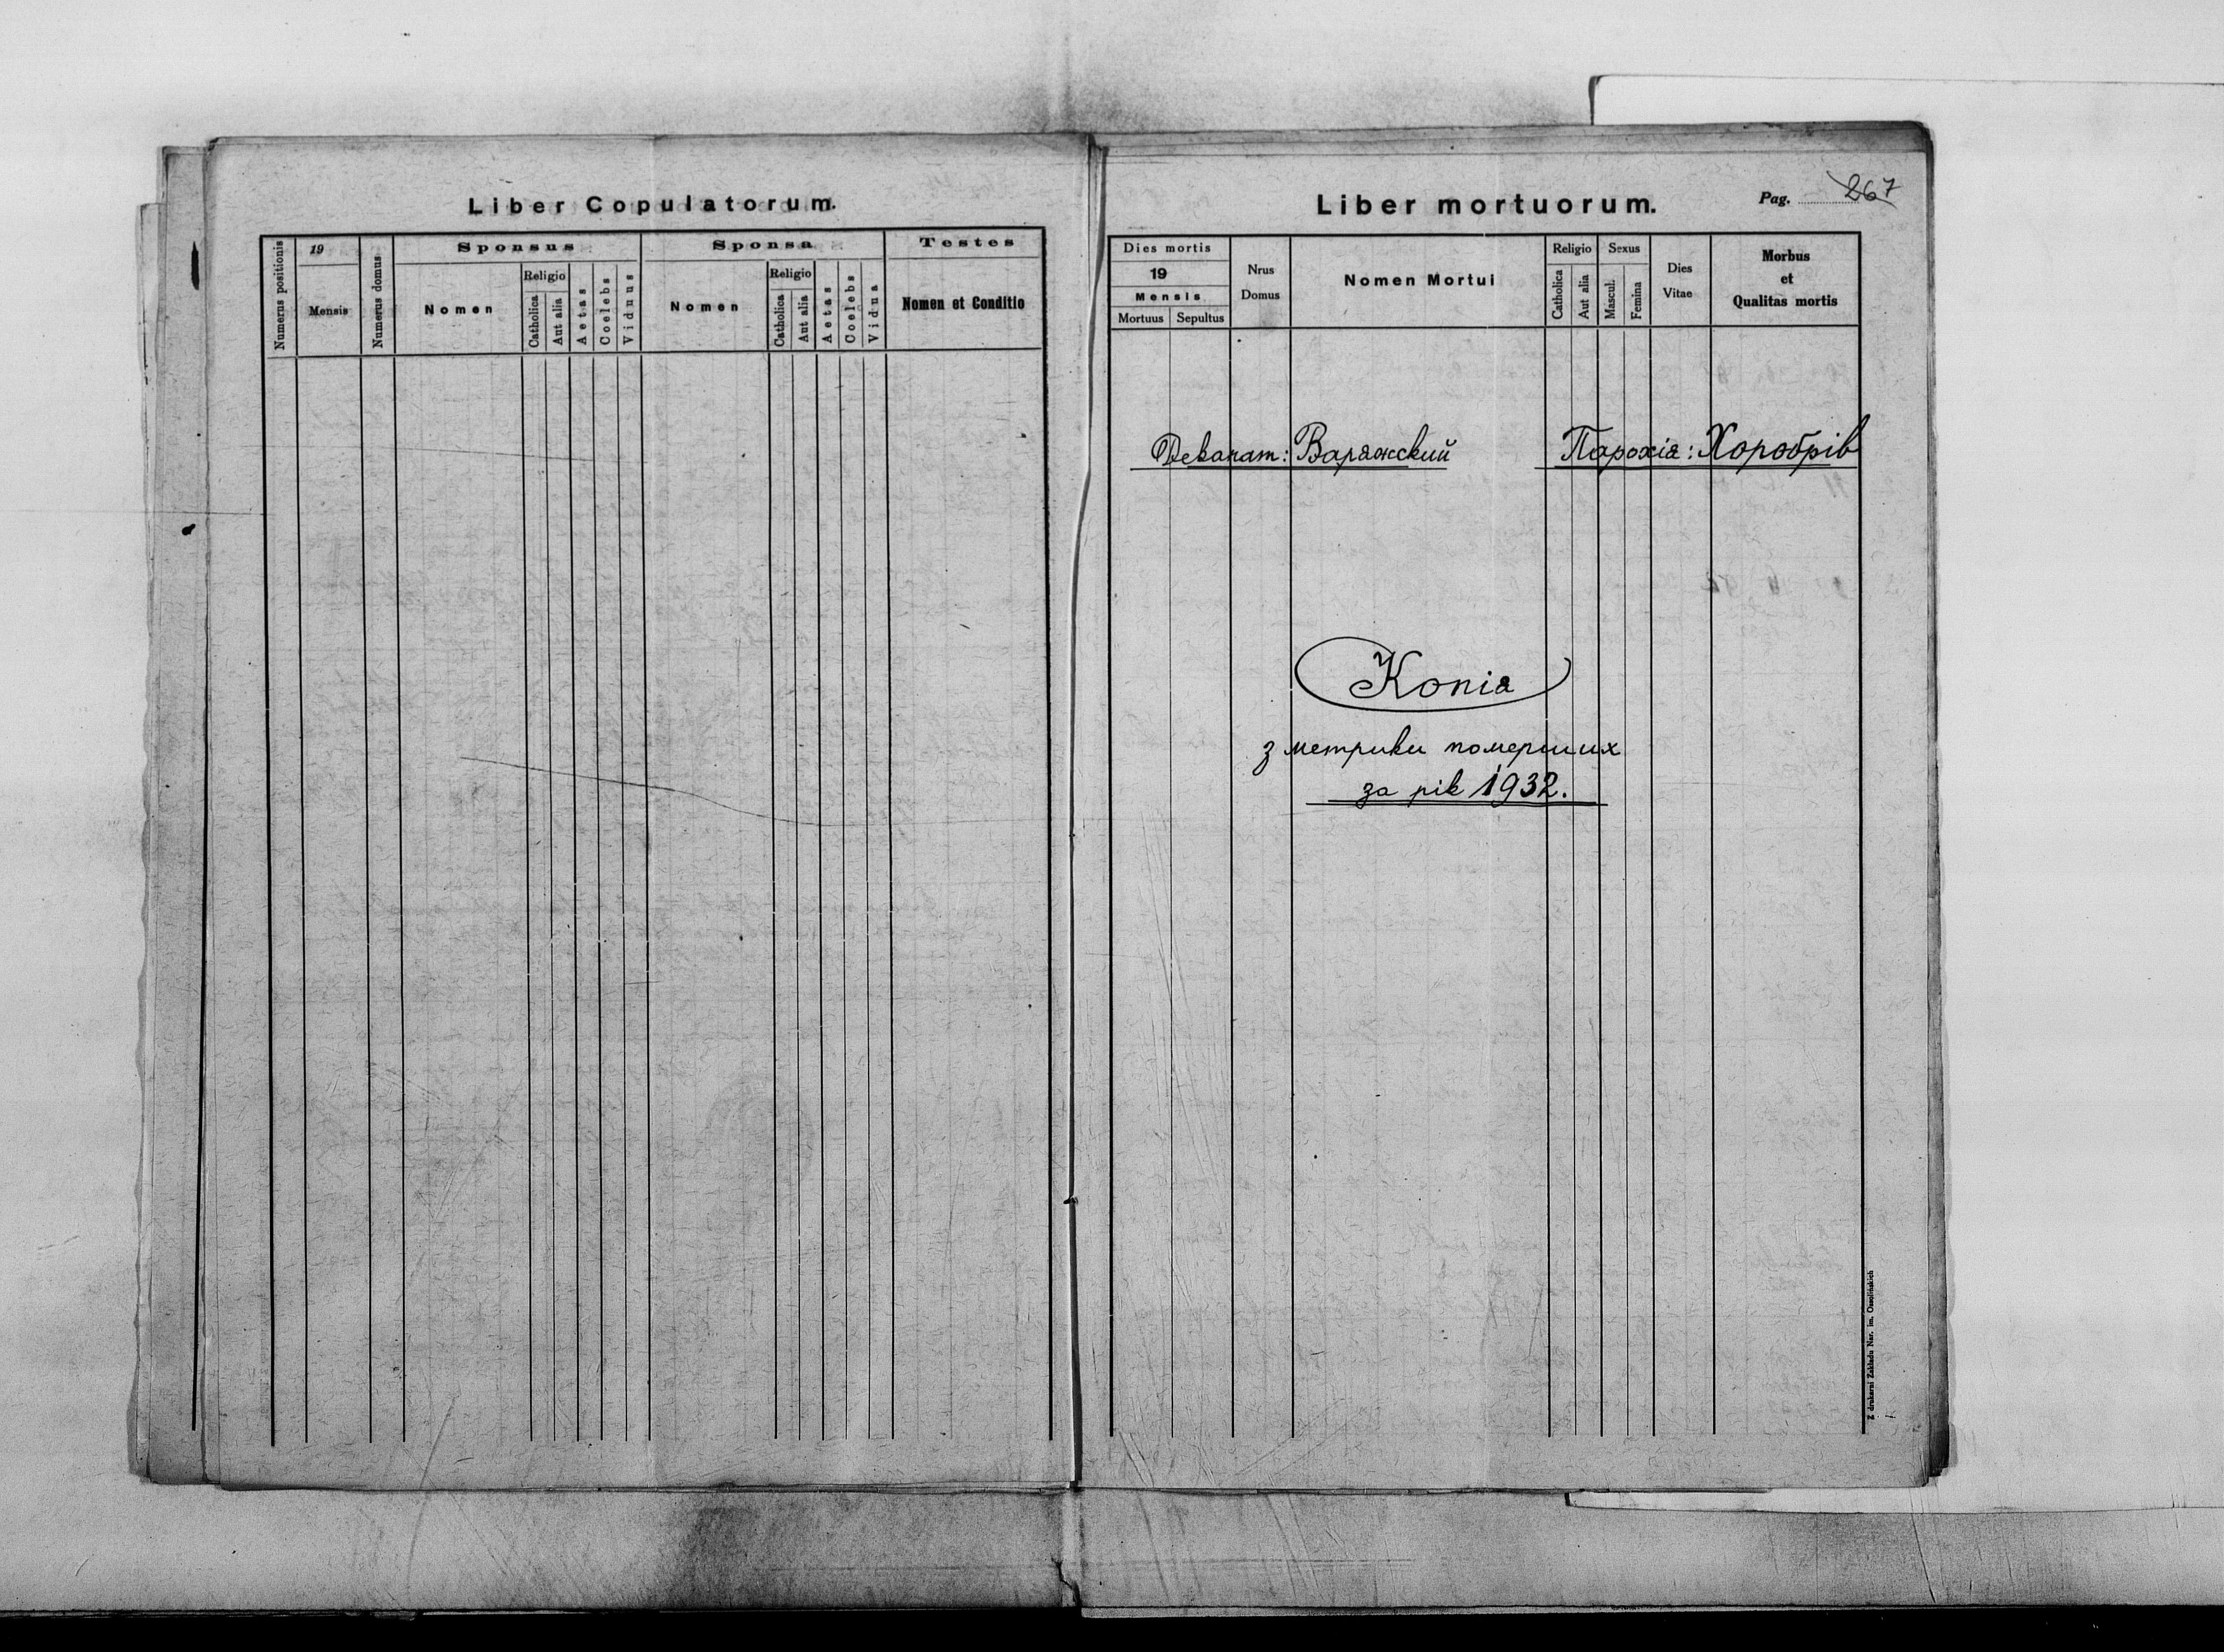 Liber Copulatorum.
Numerus positionis
19
Mensis
Numerus domus
Sponsus
Nomen
Religio
Catholica
Aut alia
Aetas
Coelebs
Viduus
Sponsa
Nomen
Religio
Catholica
Aut alia
Aetas
Coelebs
Vidua
Testes
Nomen et Conditio
Liber mortuorum.
Pag. 267
Dies mortis
19
Mensis
Mortuus Sepultus
Nrus
Domus
Nomen Mortui
Religio
Catholica
Aut alia
Sexus
Mascul.
Femina
Dies
Vitae
Morbus
et
Qualitas mortis
Деканат: Варяжский Парохія: Хоробрів
Копія
з метрики померших
за рік 1932.
Z drukarni Zakładu Nar. im. Ossolińskich